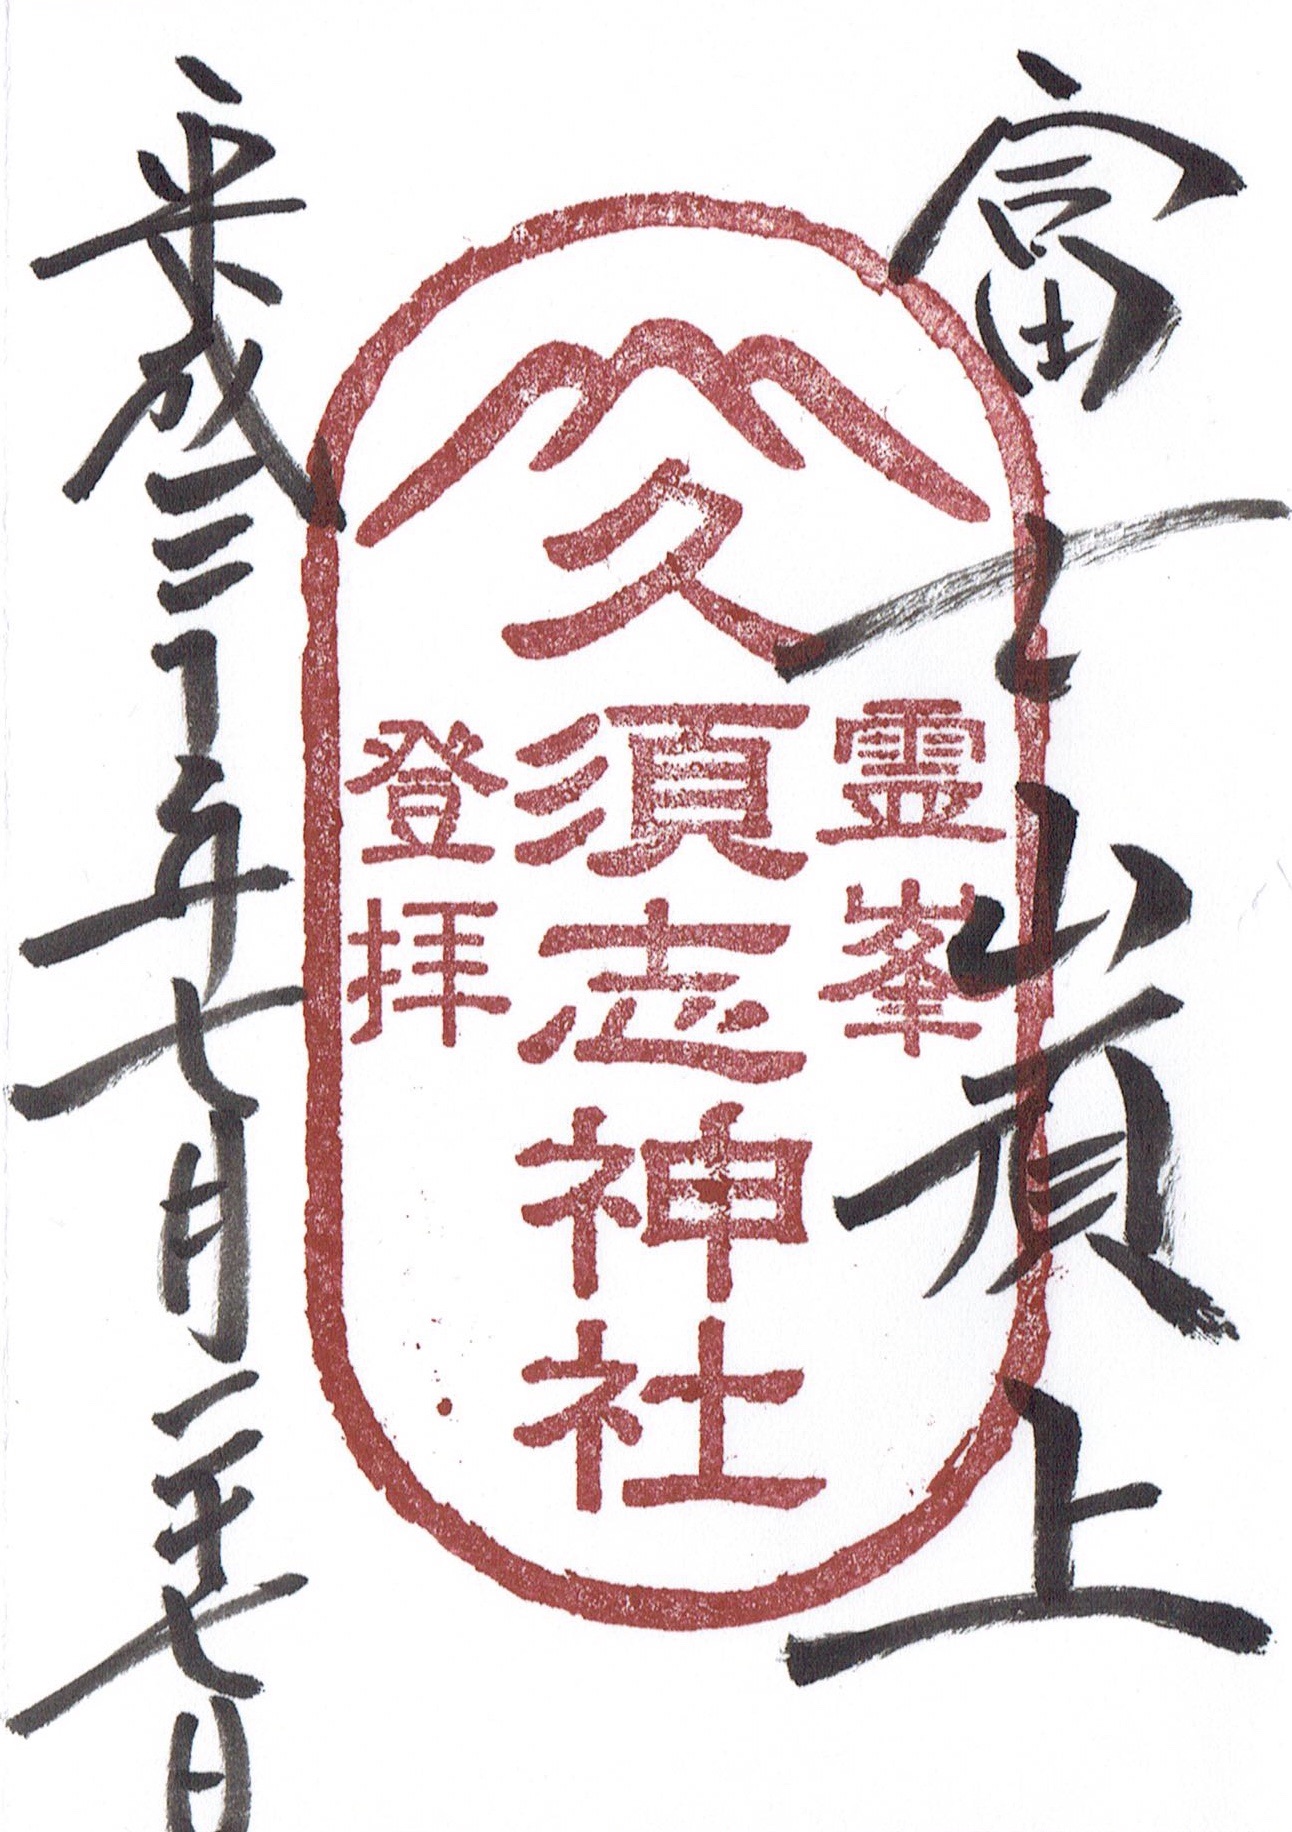 富士山頂上
霊峯
久須志神社
登拝
平成三十年七月二十七日